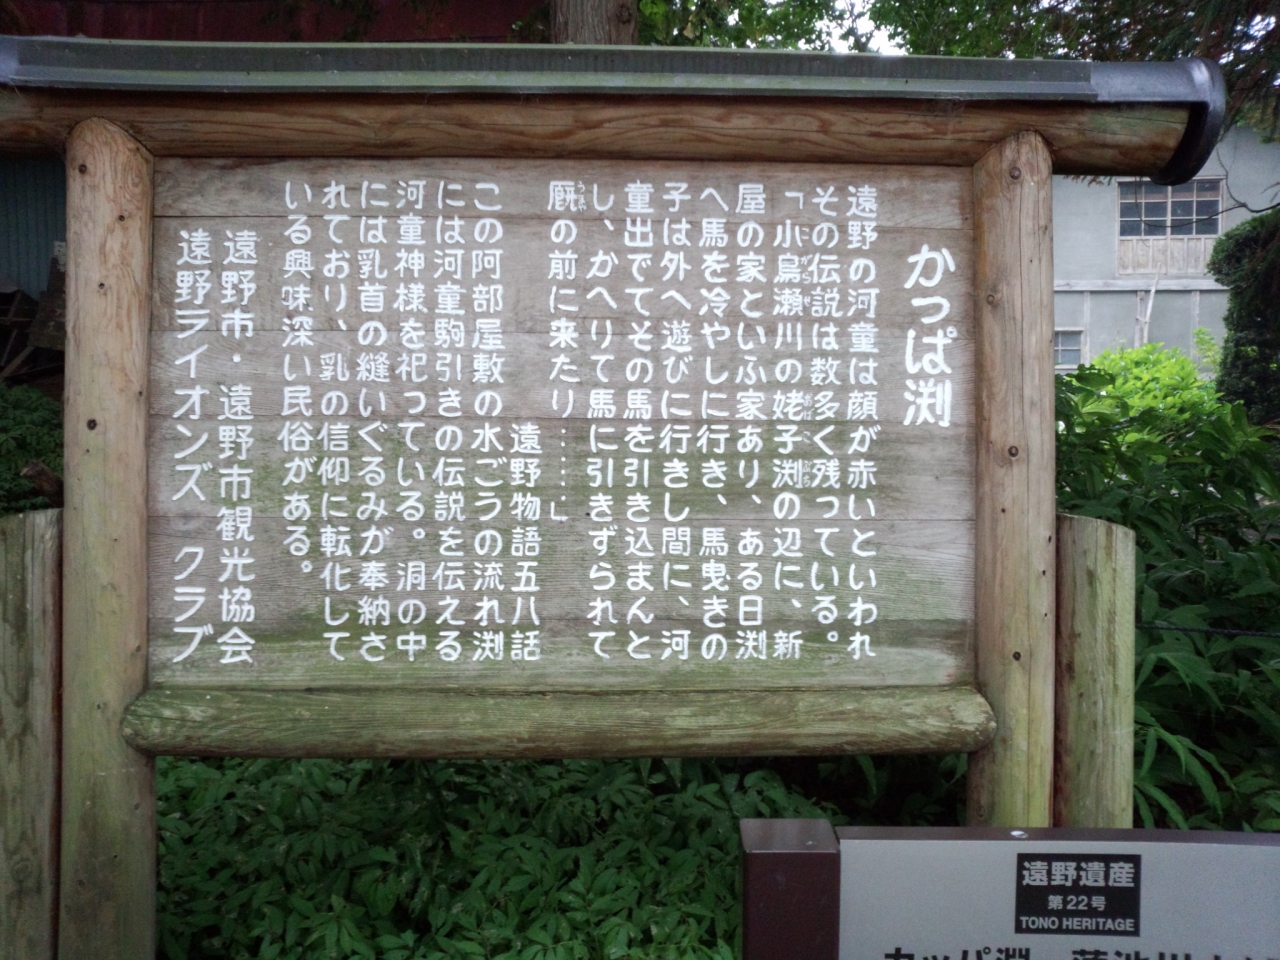 かっぱ渕
遠野の河童は顔が赤いといわれ
その伝説は数多く残っている。
「小烏瀬川の姥子渕の辺に、新
屋の家といふ家あり、ある日渕
へ馬を冷やしに行き、馬曳きの
子は外へ遊びに行きし間に、河
童出でてその馬を引き込まんと
し、かへりて馬に引きずられて
厩の前に来たり……」
遠野物語五八話
この阿部屋敷の水ごうの流れ渕
には河童駒引きの伝説を伝える
河童神様を祀っている。洞の中
には乳首の縫いぐるみが奉納さ
れており、乳の信仰に転化して
いる興味深い民俗がある。
遠野市・遠野市観光協会
遠野ライオンズ クラブ
遠野遺産
第22号
TONO HERITAGE
カッパ淵